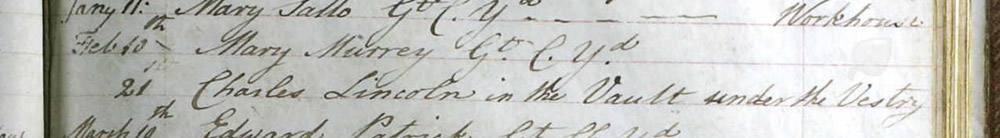 Jany 11th Mary Tallo Gt. C. Yd - - - - Workhouse
Feb 10th Mary Murrey Gt. C. Yd
21st Charles Lincoln in the Vault under the Vestry
March 10th Edward Patrick Gt Ch Yd